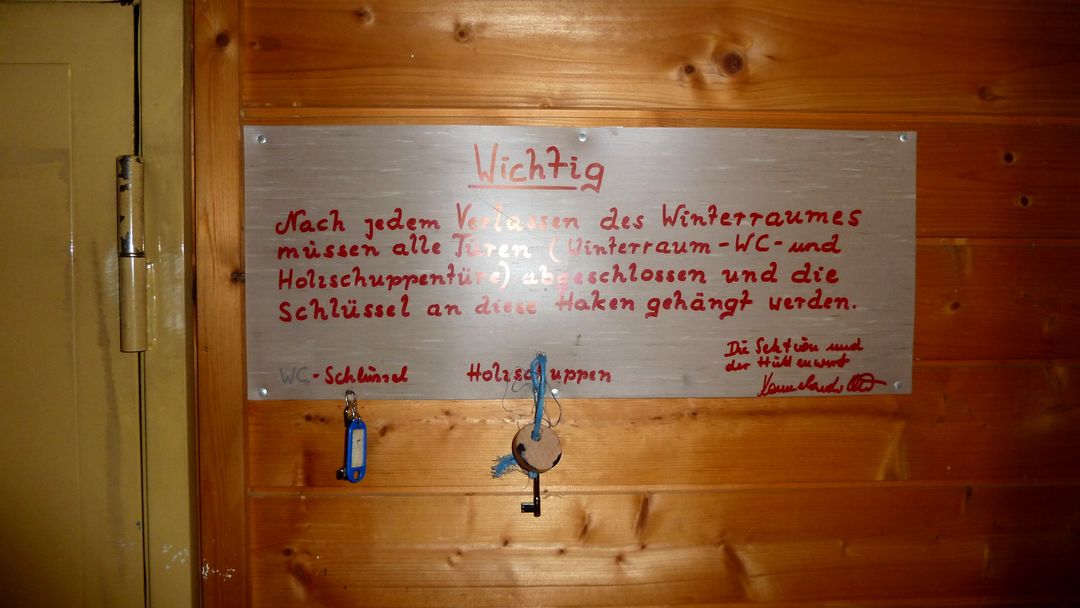 Wichtig
Nach jedem Verlassen des Winterraumes
müssen alle Türen (Winterraum-WC-und
Holzschuppentüre) abgeschlossen und die
Schlüssel an diese Haken gehängt werden.
Die Sektion und
der Hüttenwirt
WC-Schlüssel
Holzschuppen